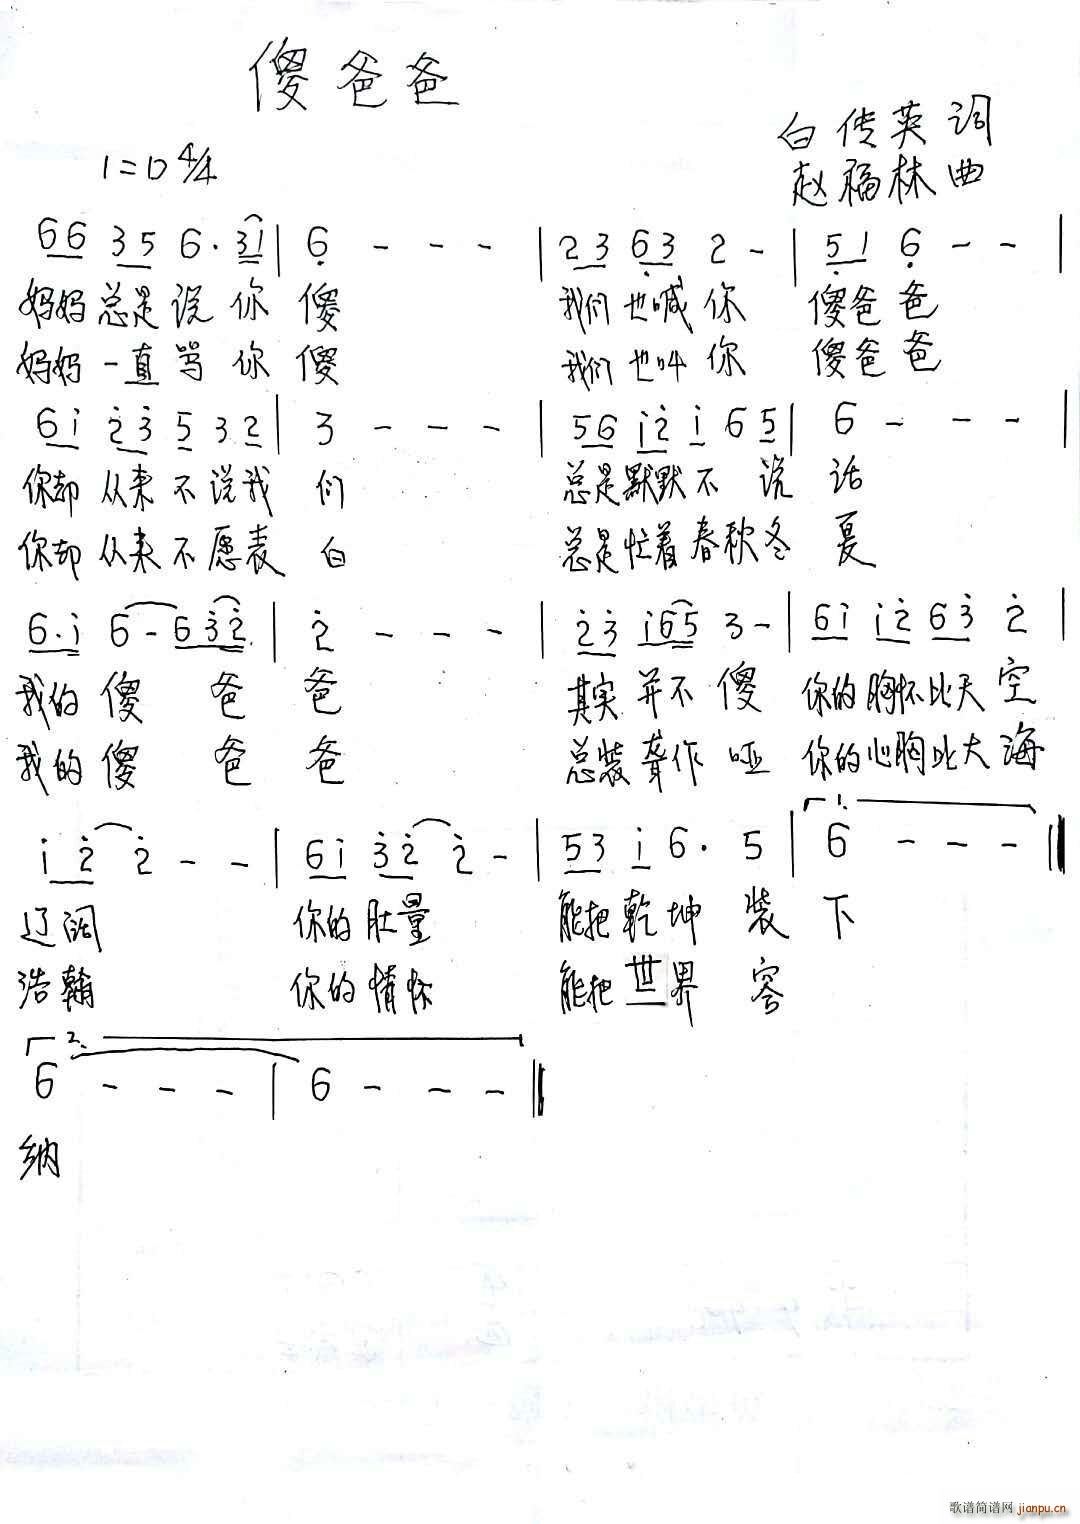 傻爸爸
1=D 4/4
白传英 词
赵福林 曲
66 35 6· 31 | 6 - - - | 23 63 2 - | 51 6 - - |
妈妈总是说你傻 我们也喊你 傻爸爸
妈妈一直骂你傻 我们也叫你 傻爸爸
6i 23 5 32 | 3 - - - | 56 i2 i 65 | 6 - - - |
你却从来不说我们 总是默默不说话
你却从来不愿表白 总是忙着春秋冬夏
6·i 6-632 | 2 - - - | 23 i65 3 - | 6i i2 63 2 |
我的傻爸爸 其实并不傻 你的胸怀比天空
我的傻爸爸 总装聋作哑 你的心胸比大海
i2 2 - - | 6i 32 2 - | 53 i 6· 5 | 1. 6 - - - ‖
辽阔 你的肚量 能把乾坤装下
浩瀚 你的情怀 能把世界容
2. 6 - - - | 6 - - - ‖
纳
歌谱简谱网 jianpu.cn